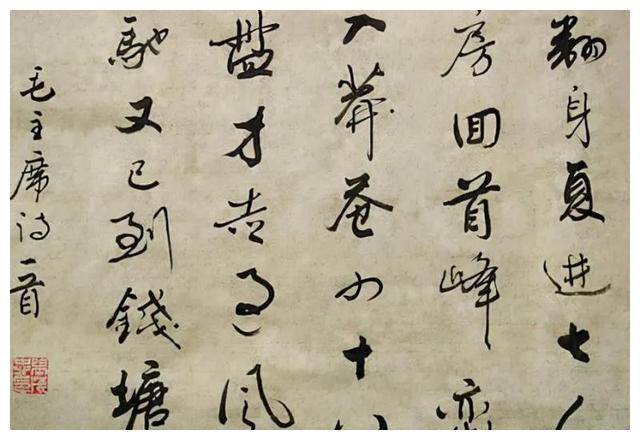 翻身复进七人
房回首峰峦
入莽蒼四十八
盤才走過风
馳又已到錢塘
毛主席诗一首